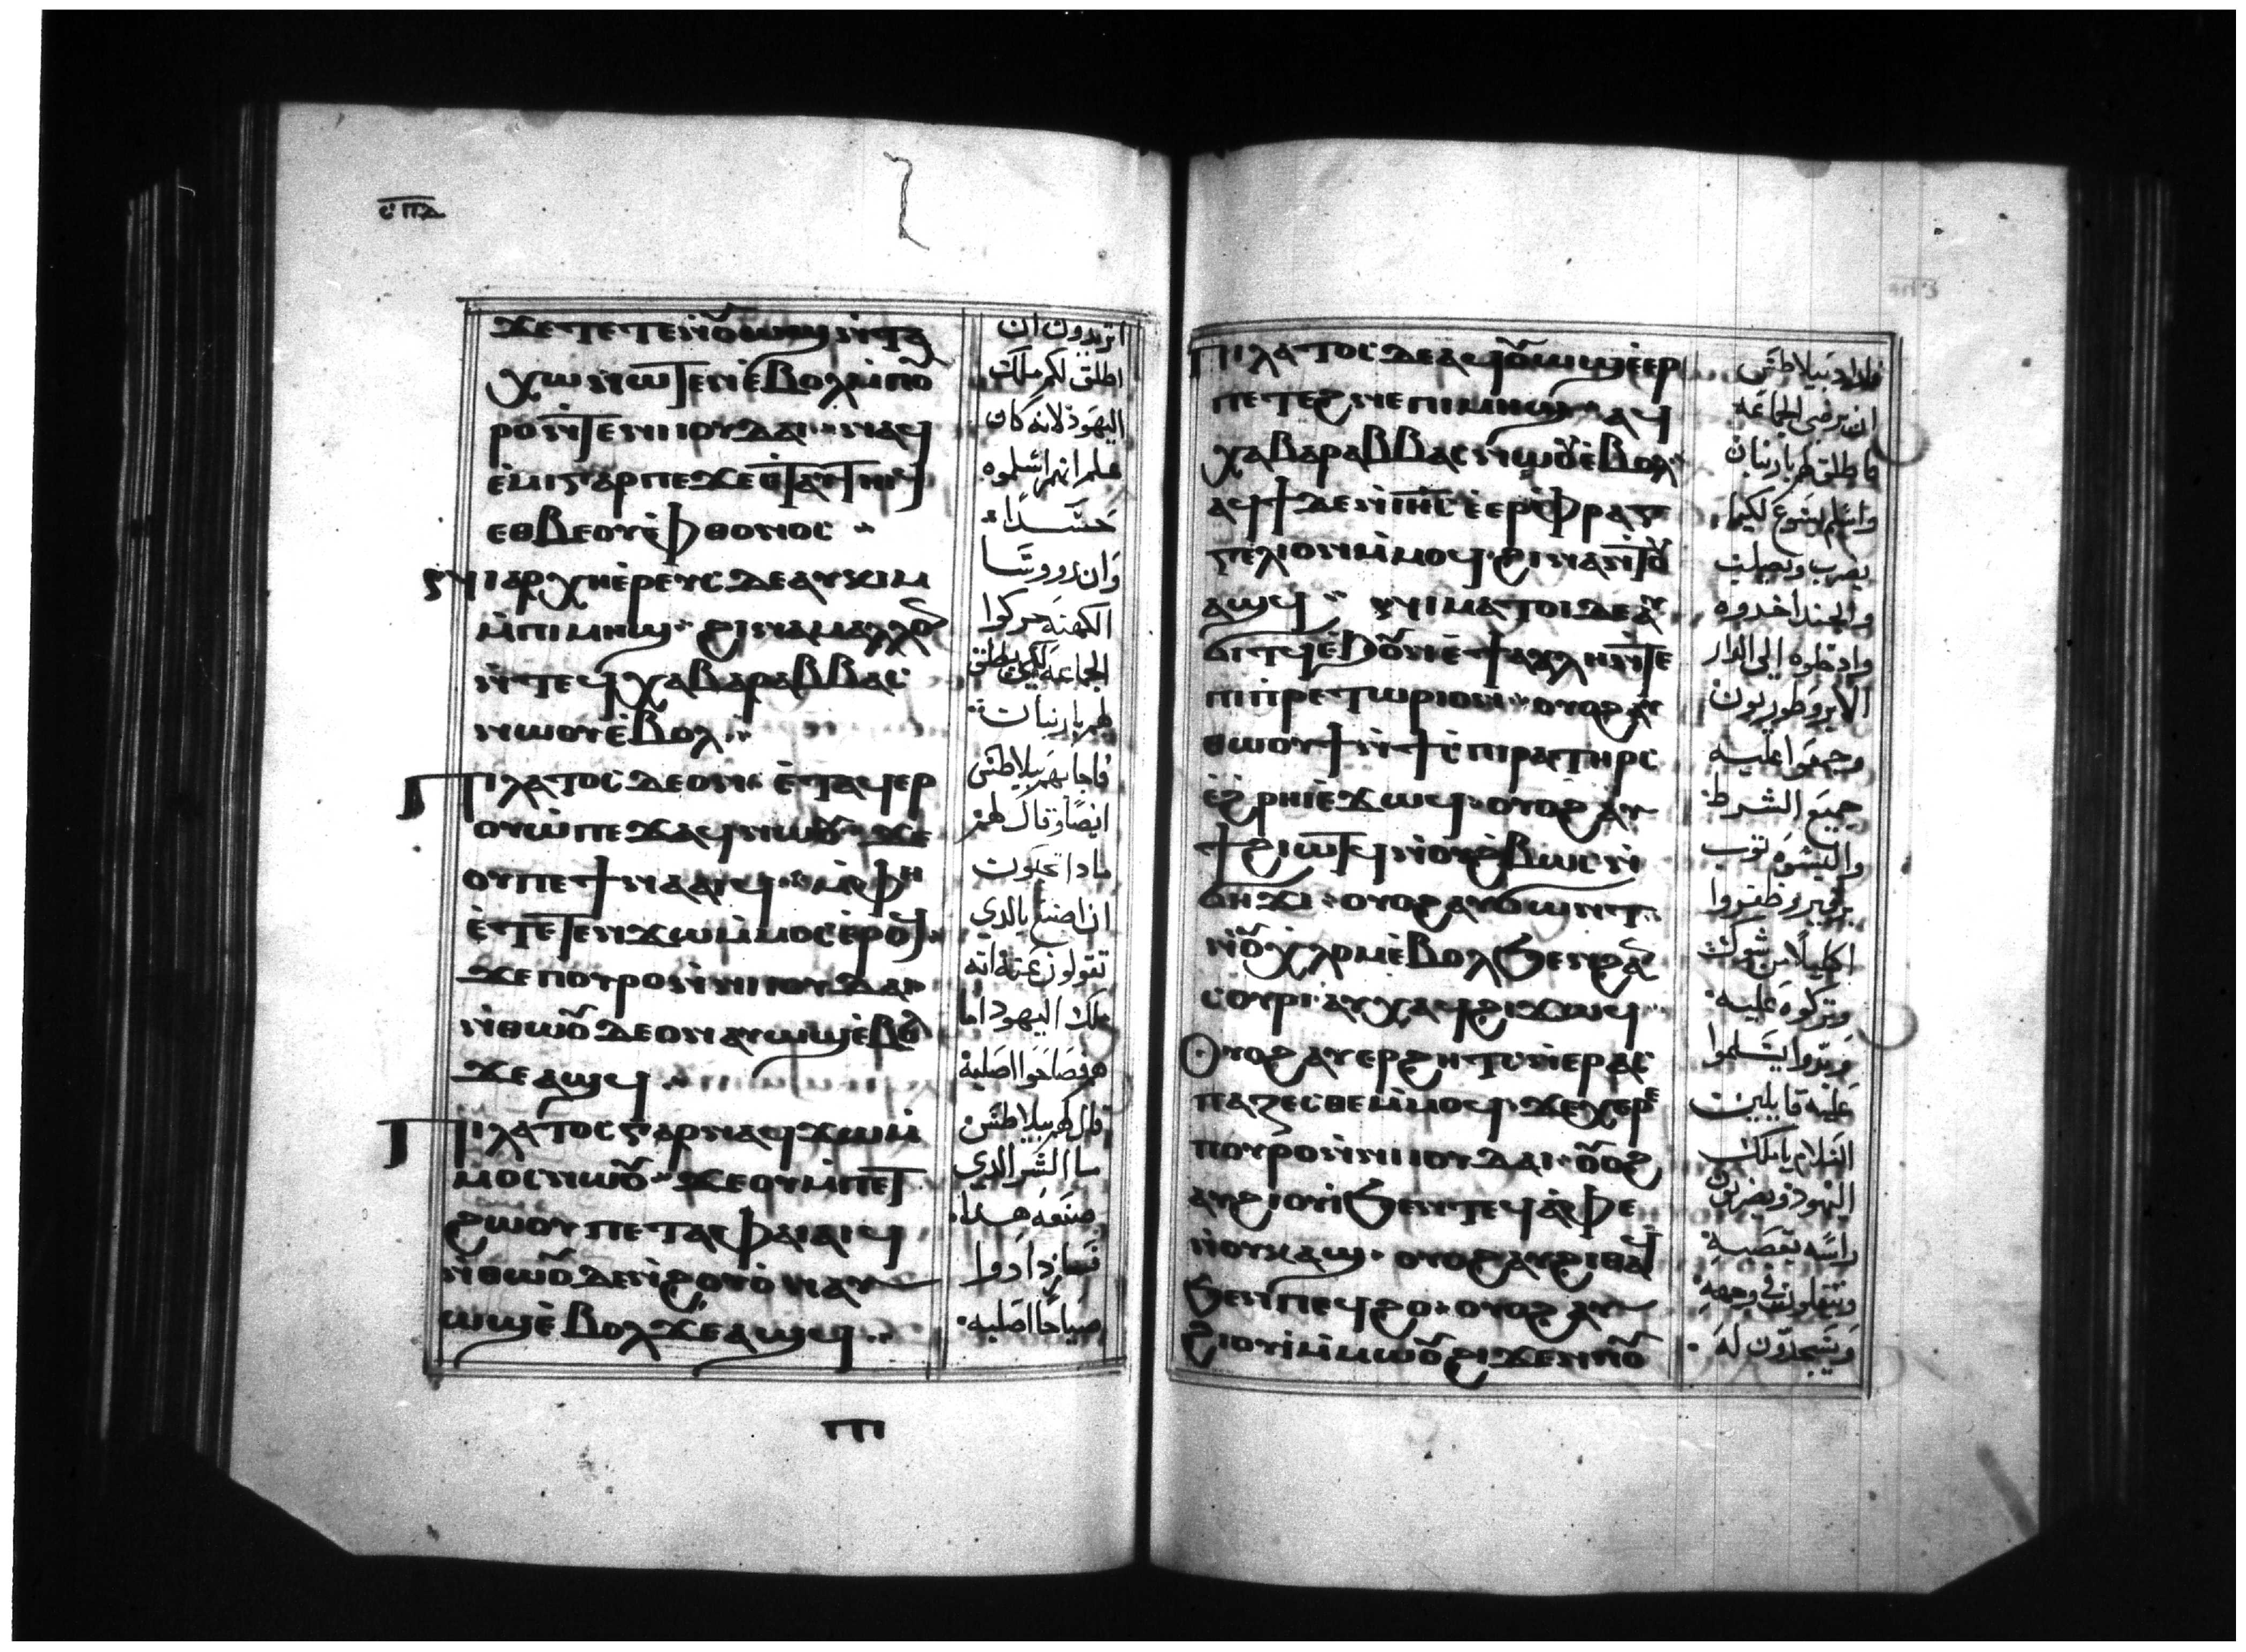 ⲥⲡⲇ
ϫⲉⲧⲉⲧⲉⲛⲟⲩⲱϣ ⲛⲧⲁ
ⲭⲱ ⲛⲱⲧⲉⲛ ⲉⲃⲟⲗ ⲙⲡⲟⲩ
ⲣⲟ ⲛⲧⲉ ⲛⲓⲓⲟⲩⲇⲁⲓ ⲛⲁϥ
ⲉⲙⲓ ⲅⲁⲣ ⲡⲉ ϫⲉ
ⲉⲑⲃⲉ ⲟⲩⲫⲑⲟⲛⲟⲥ
ⲛⲓⲁⲣⲭⲏⲉⲣⲉⲩⲥ ⲇⲉ ⲁⲩⲕⲓⲙ
ⲙⲡⲓⲙⲏϣ ϩⲓⲛⲁ ⲙⲁⲗⲗⲟⲛ
ⲛⲧⲉϥⲭⲁ ⲃⲁⲣⲁⲃⲃⲁⲥ
ⲛⲱⲟⲩ ⲉⲃⲟⲗ
ⲡⲓⲗⲁⲧⲟⲥ ⲇⲉ ⲟⲛ ⲉⲧⲁϥⲉⲣ
ⲟⲩⲱ ⲡⲉϫⲁϥ ⲛⲱⲟⲩ ϫⲉ
ⲟⲩ ⲡⲉϯⲛⲁⲁⲓϥ ⲙⲫⲏ
ⲉⲧⲉⲧⲉⲛϫⲱ ⲙⲙⲟⲥ ⲉⲣⲟϥ
ϫⲉ ⲡⲟⲩⲣⲟ ⲛⲛⲓⲓⲟⲩⲇⲁⲓ
ⲛⲑⲱⲟⲩ ⲇⲉ ⲟⲛ ⲁⲩⲱϣ ⲉⲃⲟⲗ
ϫⲉ ⲁϣϥ
ⲡⲓⲗⲁⲧⲟⲥ ⲅⲁⲣ ⲛⲁϥϫⲱ ⲙ
ⲙⲟⲥ ⲛⲱⲟⲩ ϫⲉ ⲟⲩ ⲙⲡⲉⲧ
ϩⲱⲟⲩ ⲡⲉⲧⲁ ⲫⲁⲓ ⲁⲓϥ
ⲛⲑⲱⲟⲩ ⲇⲉ ⲛϩⲟⲩⲟ ⲛⲁⲩ
ⲱϣ ⲉⲃⲟⲗ ϫⲉ ⲁϣϥ
اتريدون ان
اطلق لكم ملك
اليهود لانه كان
علم انهم اسلموه
حسدا
وان روسا
الكهنة حركوا
الجماعة لكي يطلق
لهم باربان
فاجابهم بيلاطس
ايضا وقال لهم
ماذا تحبون
ان اصنع بالدي
تقولون عنه انه
ملك اليهود اما
هم فصاحوا اصلبه
قال لهم بيلاطس
ما الشر الدي
صنعه هدا
فازدادوا
صياحا اصلبه
ⲡⲓⲗⲁⲧⲟⲥ ⲇⲉ ⲁϥⲟⲩⲱϣ ⲉⲉⲣ
ⲡⲉⲧⲉϩⲛⲉ ⲡⲓⲙⲏϣ ⲁϥ
ⲭⲁ ⲃⲁⲣⲁⲃⲃⲁⲥ ⲛⲱⲟⲩ ⲉⲃⲟⲗ
ⲁϥϯ ⲇⲉ ⲛⲓⲏⲥ ⲉⲉⲣⲫⲣⲁⲅ
ⲅⲉⲗⲓⲟⲛ ⲙⲙⲟϥ ϩⲓⲛⲁ ⲛⲧⲟⲩ
ⲁϣϥ ⲛⲓⲙⲁⲧⲟⲓ ⲇⲉ ⲁⲩ
ϭⲓⲧϥ ⲉϧⲟⲩⲛ ⲉϯⲁⲩⲗⲏ ⲛⲧⲉ
ⲡⲓⲡⲣⲉⲧⲱⲣⲓⲟⲛ ⲟⲩⲟϩ ⲁⲩ
ⲑⲱⲟⲩϯ ⲛϯⲥⲡⲓⲣⲁ ⲧⲏⲣⲥ
ⲉϩⲣⲏⲓ ⲉϫⲱϥ ⲟⲩⲟϩ ⲁⲩ
ϯ ϩⲓⲱⲧϥ ⲛⲟⲩϩⲃⲱⲥ ⲛ
ϭⲏϫⲓ ⲟⲩⲟϩ ⲁⲩϭⲱⲛⲧ
ⲛⲟⲩⲭⲗⲟⲙ ⲉⲃⲟⲗ ϧⲉⲛ ϩⲁⲛ
ⲥⲟⲩⲣⲓ ⲁⲩⲭⲁϥ ϩⲓϫⲱϥ
ⲟⲩⲟϩ ⲁⲩⲉⲣϩⲏⲧⲥ ⲛⲉⲣⲁⲥ
ⲡⲁⲍⲉⲥⲑⲉ ⲙⲙⲟϥ ϫⲉ ⲭⲉⲣⲉ
ⲡⲟⲩⲣⲟ ⲛⲛⲓⲓⲟⲩⲇⲁⲓ ⲟⲩⲟϩ
ⲁⲩϩⲓⲟⲩⲓ ϧⲉⲛ ⲧⲉϥⲁⲫⲉ
ⲛⲟⲩⲕⲁϣ ⲟⲩⲟϩ ⲁⲩϩⲓⲑⲁϥ
ϧⲉⲛ ⲡⲉϥϩⲟ ⲟⲩⲟϩ ⲁⲩ
ϩⲓⲟⲩⲓ ⲙⲙⲱⲟⲩ ϩⲓϫⲉⲛ ⲛⲟⲩ
فاراد بيلاطس
ان يرضي الجماعة
فاطلق لهم باربان
واسلم يسوع لكيما
يضرب ويصلب
والجند اخدوه
وادخلوه الي الدار
الابروطوريون
وجمعوا عليه
جميع الشرط
والبسوه ثوب
برفير وظفروا
اكليلا من شوك
وتركوه عليه
وبدوا يسلموا
عليه قايلين
السلام يا ملك
اليهود ويضربون
راسه بقصبه
ويتفلون في وجهه
ويسجدون له